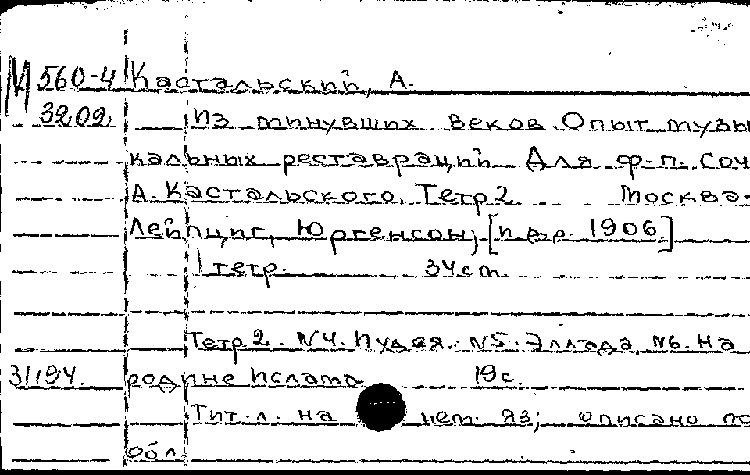 М 560-4 Кастальский, А.
3202. Из минувших веков. Опыт музы
кальных реставраций Для ф-п. Соч
А. Кастальского. Тетр 2 Москва-
Лейпциг, Юргенсон, [п.в.р. 1906]
1 тетр. 34 cm.
Тетр 2. N4. Иудея. N5. Эллада. N6. На
31194. родине Ислама 19 с.
Тит. л. на нем. яз; описано по
обл.